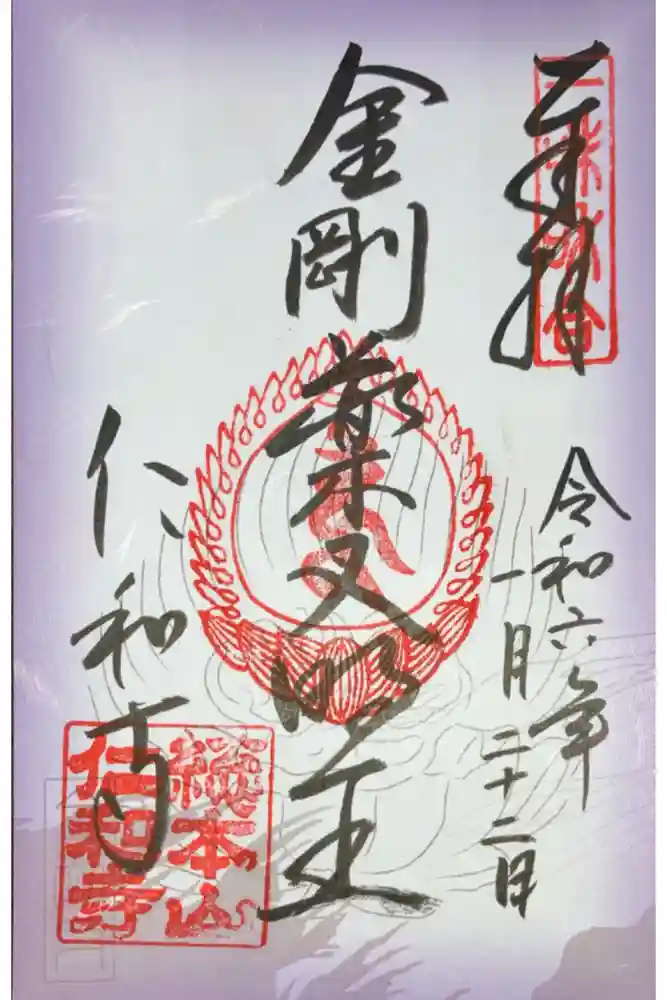 奉拝
令和六年
一月二十二日
金剛薬叉明王
仁和寺
総本山
仁和寺